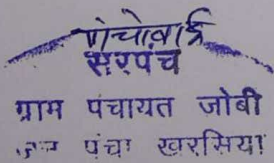 सरपंच
ग्राम पंचायत जोबी
पंचा खरसिया